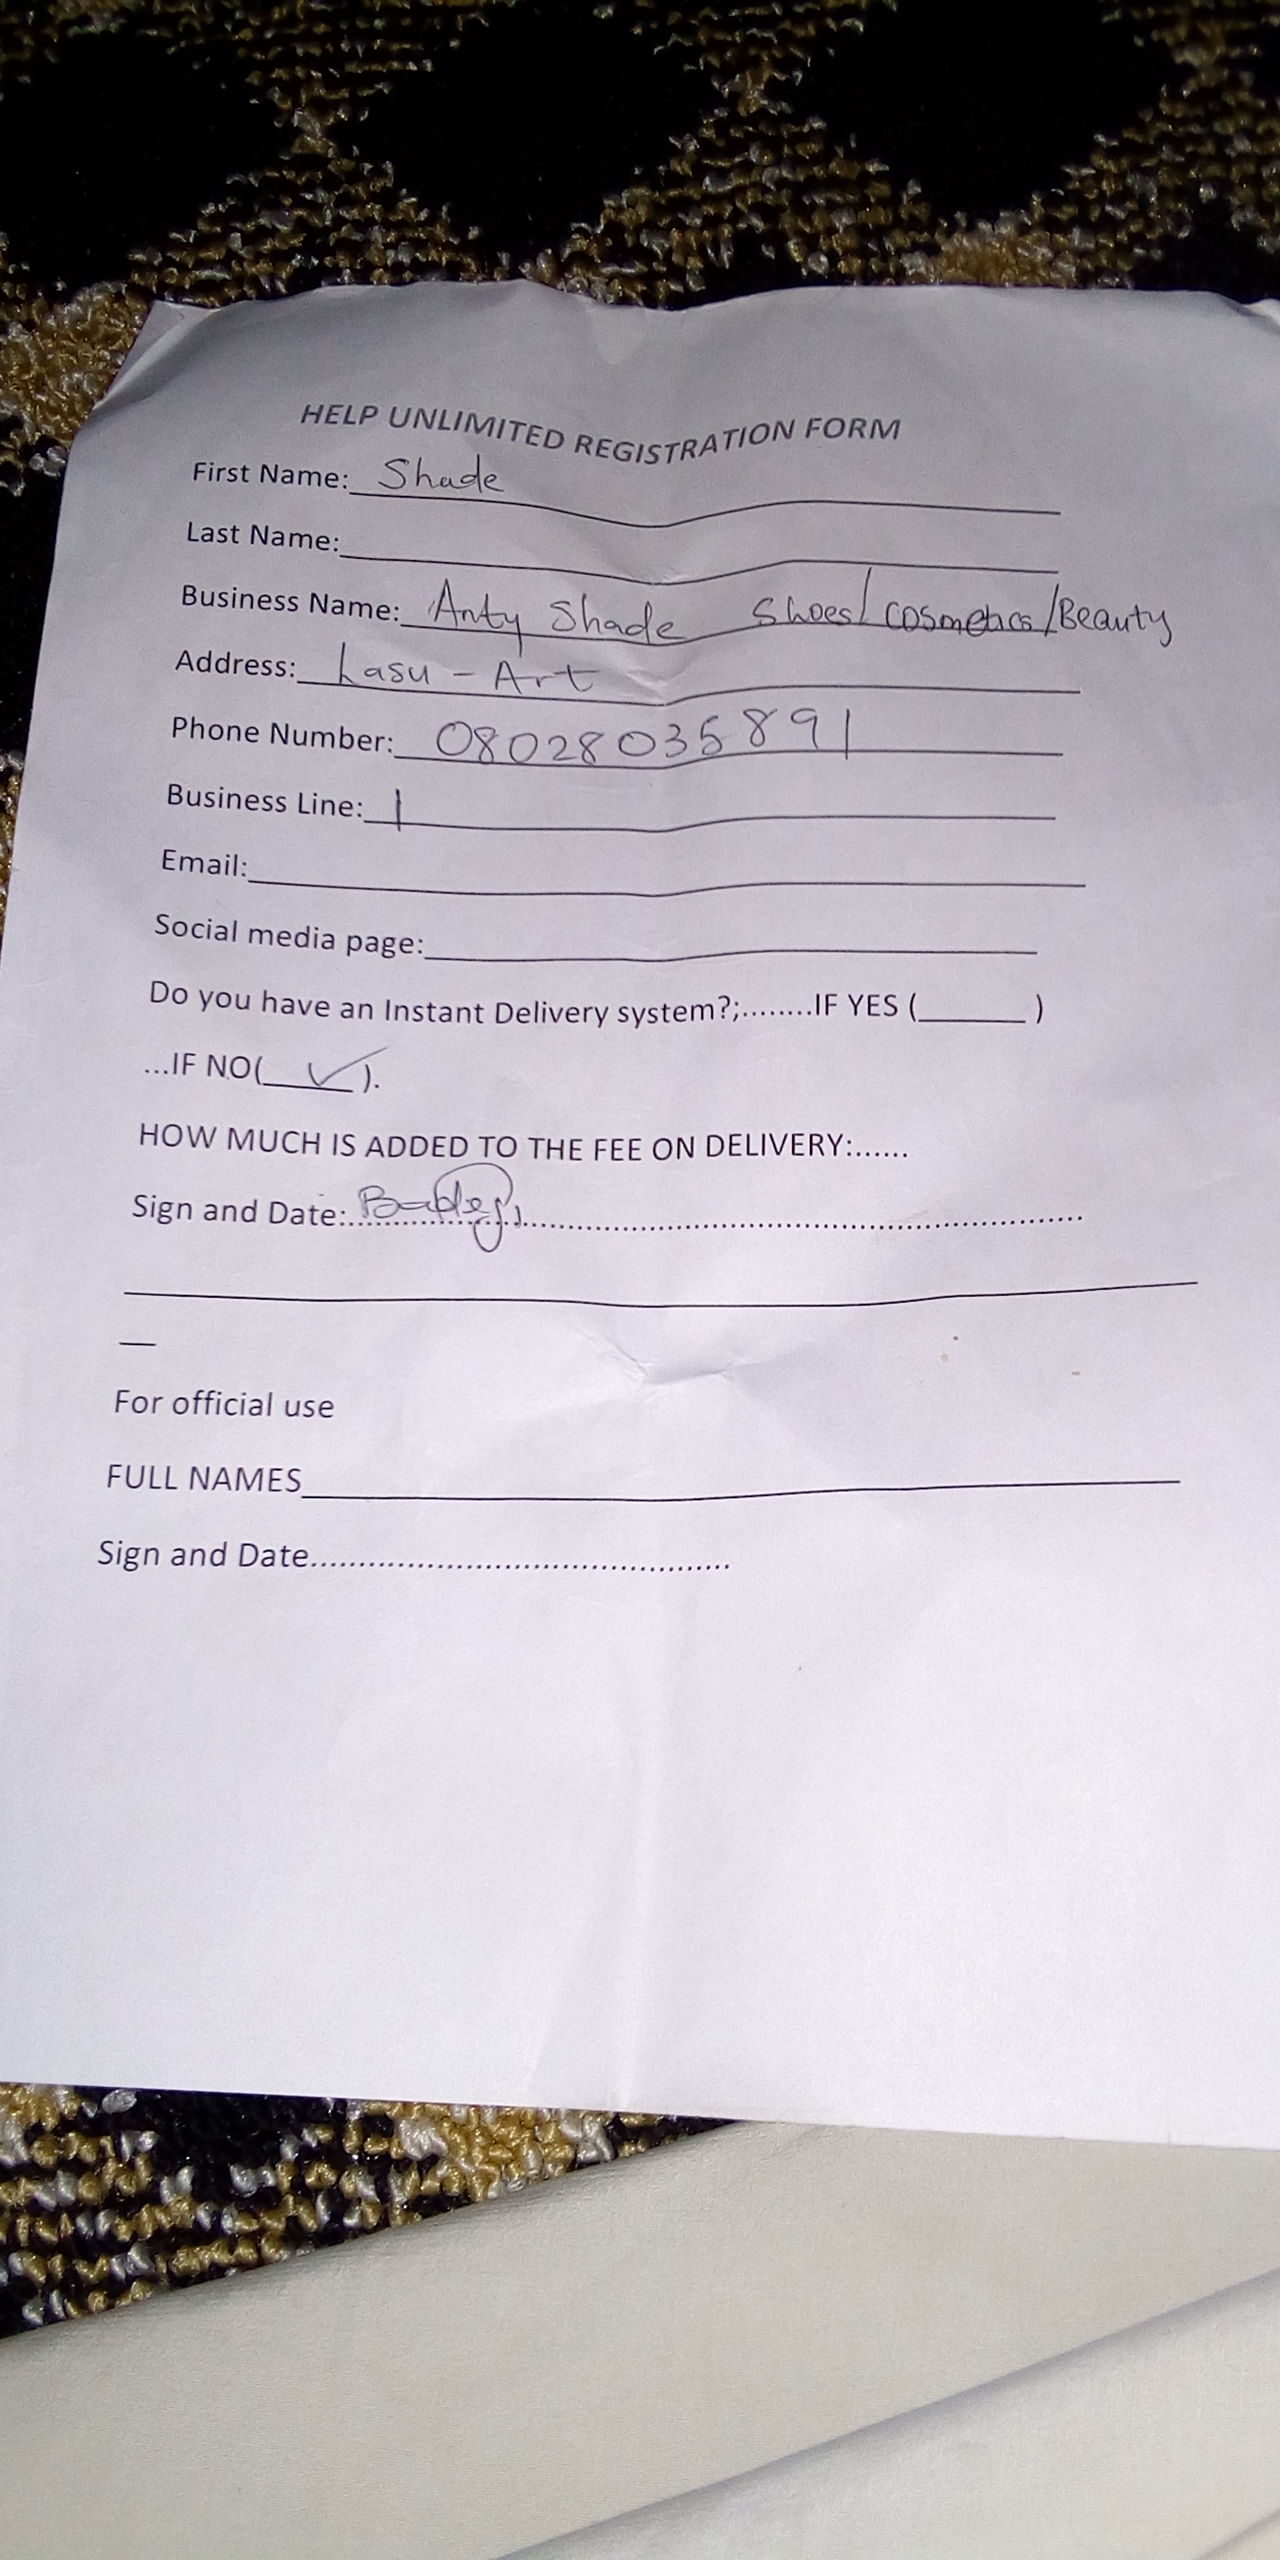 HELP UNLIMITED REGISTRATION FORM
First Name: Shade
Last Name:
Business Name: Anty Shade Shoes/cosmetics/Beauty
Address: Lasu - Art
Phone Number: 08028035891
Business Line: |
Email:
Social media page:
Do you have an Instant Delivery system?;........IF YES (______)
...IF NO(__✓__).
HOW MUCH IS ADDED TO THE FEE ON DELIVERY:......
Sign and Date:
For official use
FULL NAMES
Sign and Date